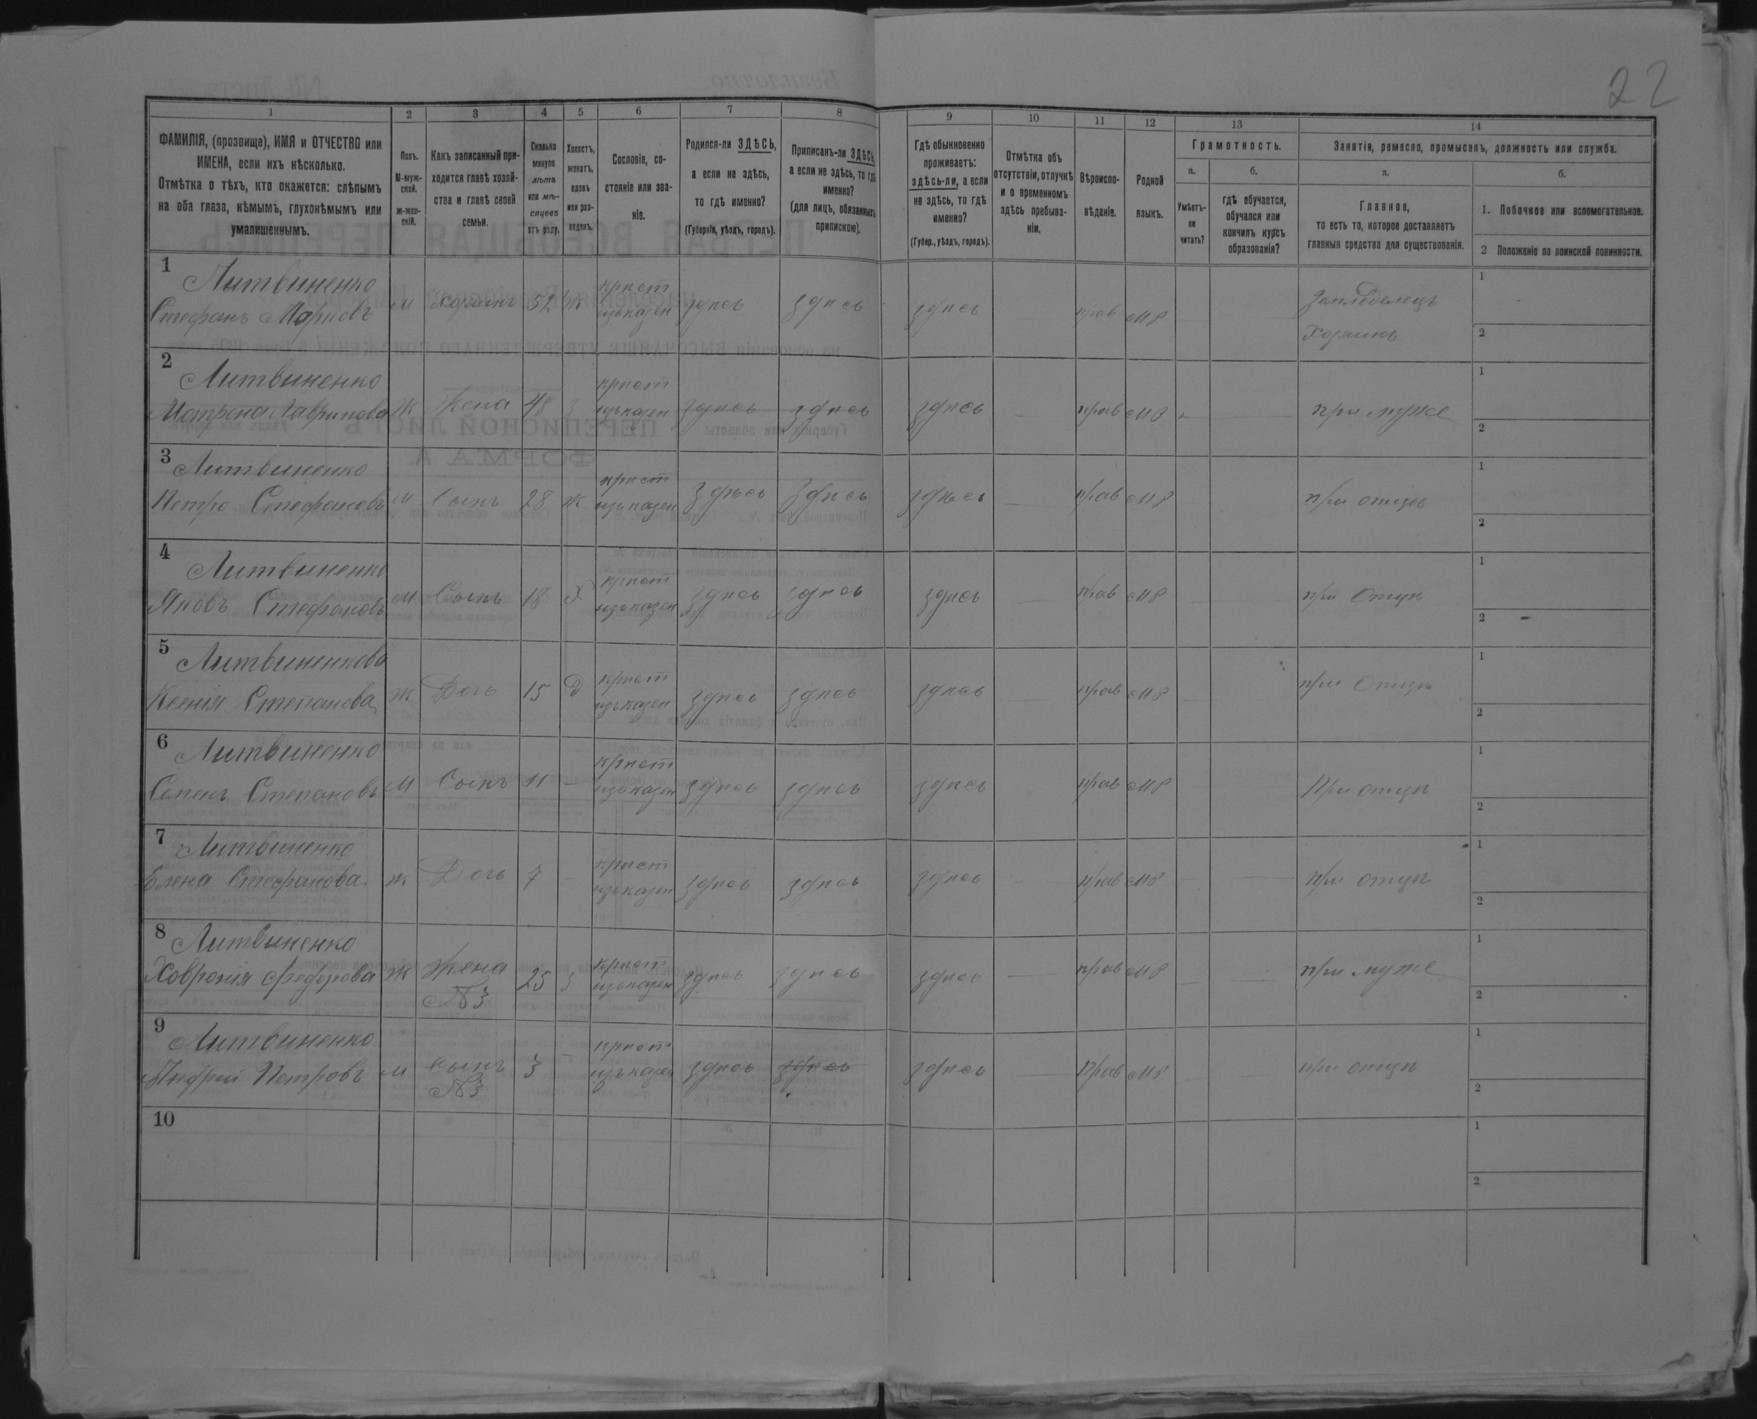 22
1 2 3 4 5 6 7 8 9 10 11 12 13 14
ФАМИЛІЯ, (прозвище), ИМЯ и ОТЧЕСТВО или
ИМЕНА, если ихъ нѣсколько.
Отмѣтка о тѣхъ, кто окажется: слѣпымъ
на оба глаза, нѣмымъ, глухонѣмымъ или
умалишеннымъ.
Полъ.
М-муж-
ской.
ж-жен-
скій.
Какъ записанный при-
ходится главѣ хозяй-
ства и главѣ своей
семьи.
Сколько
минуло
лѣтъ
или мѣ-
сяцевъ
отъ роду.
Холостъ,
женатъ,
вдовъ
или раз-
веденъ.
Сословіе, со-
стояніе или зва-
ніе.
Родился-ли ЗДѢСЬ,
а если не здѣсь,
то гдѣ именно?
(Губернія, уѣздъ, городъ).
Приписанъ-ли ЗДѢСЬ,
а если не здѣсь, то гдѣ
именно?
(для лицъ, обязанныхъ
припискою).
Гдѣ обыкновенно
проживаетъ:
здѣсь-ли, а если
не здѣсь, то гдѣ
именно?
(Губер., уѣздъ, городъ).
Отмѣтка объ
отсутствіи, отлучкѣ
и о временномъ
здѣсь пребыва-
ніи.
Вѣроиспо-
вѣданіе.
Родной
языкъ.
Грамотность.
а.
Умѣетъ-
ли
читать?
б.
гдѣ обучается,
обучался или
кончилъ курсъ
образованія?
Занятія, ремесло, промыселъ, должность или служба.
а.
Главное,
то есть то, которое доставляетъ
главныя средства для существованія.
б.
1. Побочное или вспомогательное.
2 Положеніе по воинской повинности.
1 Литвиненко крест Земледелецъ 1
Стефанъ Марковъ М хозяинъ 52 Ж изъ казен здѣсь здѣсь здѣсь прав Хозяинъ 2
2 Литвиненко крест 1
Жена 48 изъ казен здѣсь здѣсь здѣсь прав при муже 2
3 Литвиненко крест 1
Петро Стефановъ М Сынъ 28 Ж изъ казен здѣсь здѣсь здѣсь прав при отцѣ 2
4 Литвиненко крест 1
Яковъ Стефановъ М Сынъ 18 Х изъ казен здѣсь здѣсь здѣсь прав при Отцѣ 2
5 Литвиненкова крест 1
Ксенія Степанова Ж Дочь 15 Д изъ казен здѣсь здѣсь здѣсь прав при Отцѣ 2
6 Литвиненко крест 1
Семенъ Степановъ М Сынъ 11 изъ казен здѣсь здѣсь здѣсь прав При отцѣ 2
7 Литвиненко крест 1
Елена Стефанова ж Дочь 7 изъ казен здѣсь здѣсь здѣсь прав при отцѣ 2
8 Литвиненко крест 1
Ховронія Федорова Ж Жена 25 изъ казен здѣсь здѣсь здѣсь прав при муже 2
№3
9 Литвиненко крест 1
Андрей Петровъ М сынъ 3 изъ казен здѣсь здѣсь здѣсь прав при отцѣ 2
№3
10 1
2